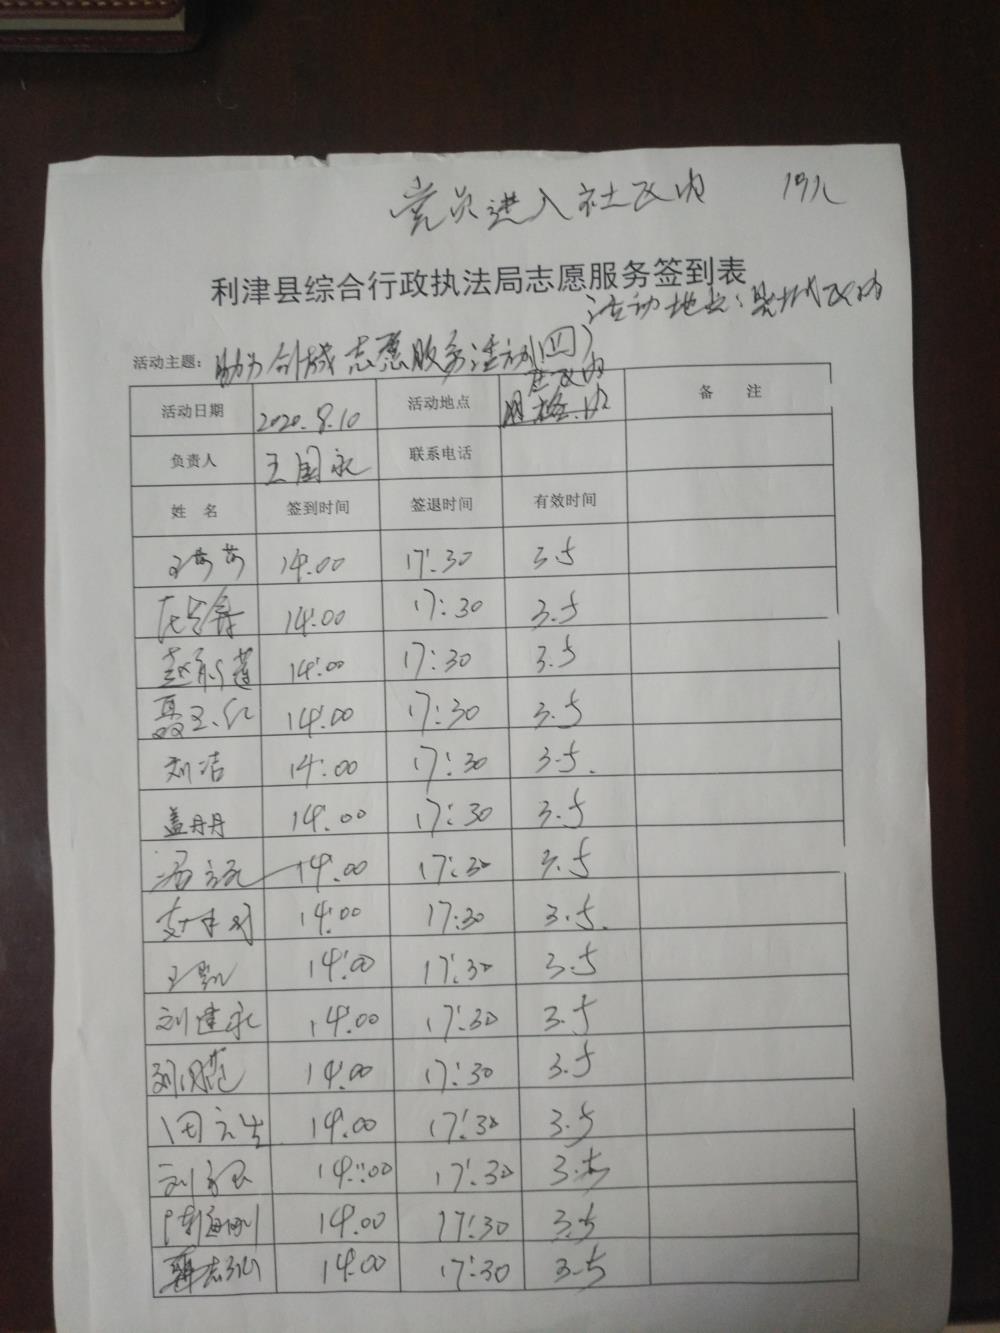 党员进入社区内
利津县综合行政执法局志愿服务签到表
活动地点:县城区内
活动主题: 助力创城志愿服务活动(四)
活动日期 2020.8.10 活动地点 备 注
负责人 王国永 联系电话
姓 名 签到时间 签退时间 有效时间
王莎莎 14:00 17:30 3.5
14:00 17:30 3.5
赵 莲 14:00 17:30 3.5
聂玉红 14:00 17:30 3.5
刘洁 14:00 17:30 3.5.
盖丹丹 14:00 17:30 3.5
14:00 17:30 3.5
14:00 17:30 3.5.
王凯 14:00 17:30 3.5
刘建永 14:00 17:30 3.5
14:00 17:30 3.5
14:00 17:30 3.5
刘 14:00 17:30 3.5
14:00 17:30 3.5
14:00 17:30 3.5